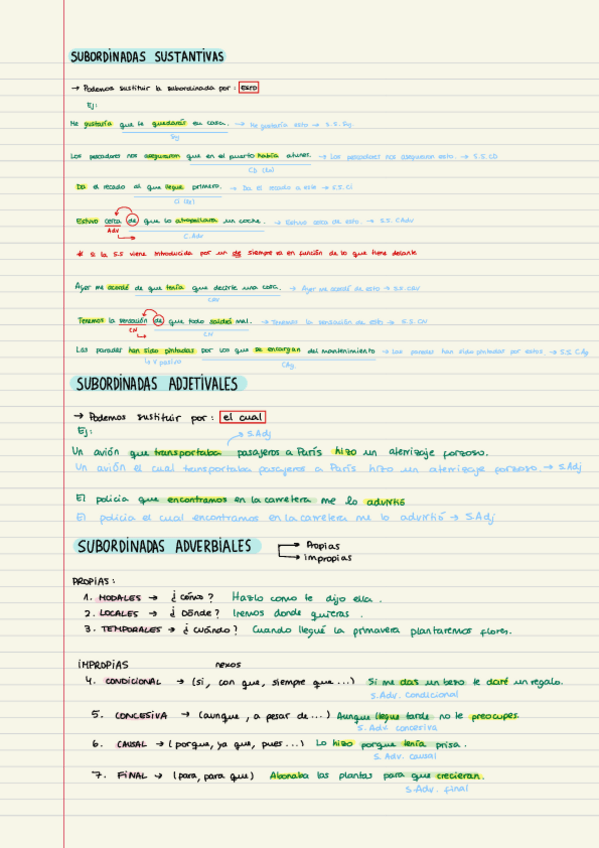 SUBORDINADAS SUSTANTIVAS
→ Podemos sustituir la subordinada por: esto
Ej:
Me gustaría que te quedarás en casa. → Me gustaría esto → S.S. Suj
Suj
Los pescadores nos aseguraron que en el puerto había atunes. → Los pescadores nos aseguraron esto. → S.S.CD
CD (lo)
Da el recado al que llegue primero. → Da el recado a este → S.S. Ci
CI (le)
Estuvo cerca de que lo atropellara un coche. → Estuvo cerca de esto. → S.S. CAdv
Adv
C.Adv
* Si la S.S viene introducida por un de siempre va en función de lo que tiene delante
Ayer me acordé de que tenía que decirte una cosa. → Ayer me acordé de esto → S.S. CRV
CRV
Tenemos la sensación de que todo saldrá mal. → Tenemos la sensación de esto → S.S. CN
CN
CN
Las paredes han sido pintadas por los que se encargan del mantenimiento → Las paredes han sido pintadas por estos → S.S. CAg
CAg
SUBORDINADAS ADJETIVALES
→ Podemos sustituir por: el cual
Ej:
S.Adj
Un avión que transportaba pasajeros a París hizo un aterrizaje forzoso.
Un avión el cual transportaba pasajeros a París hizo un aterrizaje forzoso. → S.Adj
El policía que encontramos en la carretera me lo advirtió
El policía el cual encontramos en la carretera me lo advirtió → S.Adj
SUBORDINADAS ADVERBIALES
Propias
Impropias
PROPIAS:
1. MODALES → ¿Cómo? Hazlo como te dijo ella.
2. LOCALES → ¿Dónde? Iremos donde quieras.
3. TEMPORALES → ¿Cuándo? Cuando llegué la primavera plantaremos flores.
IMPROPIAS nexos
4. CONDICIONAL → (si, con que, siempre que...) Si me das un beso te daré un regalo.
S.Adv. condicional
5. CONCESIVA → (aunque, a pesar de...) Aunque llegue tarde no te preocupes
S.Adv. concesiva
6. CAUSAL → (porque, ya que, pues...) Lo hizo porque tenía prisa.
S.Adv. causal
7. FINAL → (para, para que) Abonaba las plantas para que crecieran.
S.Adv. final